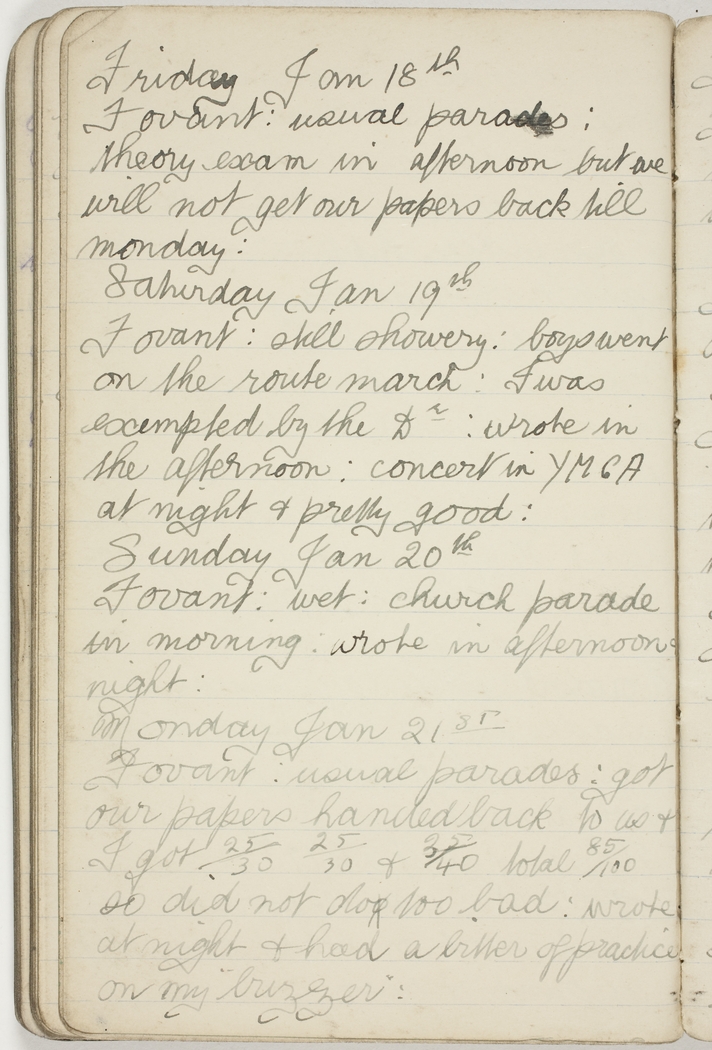 Friday Jan 18th
Fovant: usual parades:
theory exam in afternoon but we
will not get our papers back till
monday:
Saturday Jan 19th
Fovant: still showery: boys went
on the route march: I was
exempted by the Dr: wrote in
the afternoon: concert in YMCA
at night & pretty good:
Sunday Jan 20th
Fovant: wet: church parade
in morning: wrote in afternoon &
night:
Monday Jan 21st
Fovant: usual parades: got
our papers handed back to us &
I got 25/30 25/30 & 35/40 total 85/100
so did not do too bad: wrote
at night & had a bitter of practice
on my "buzzer":